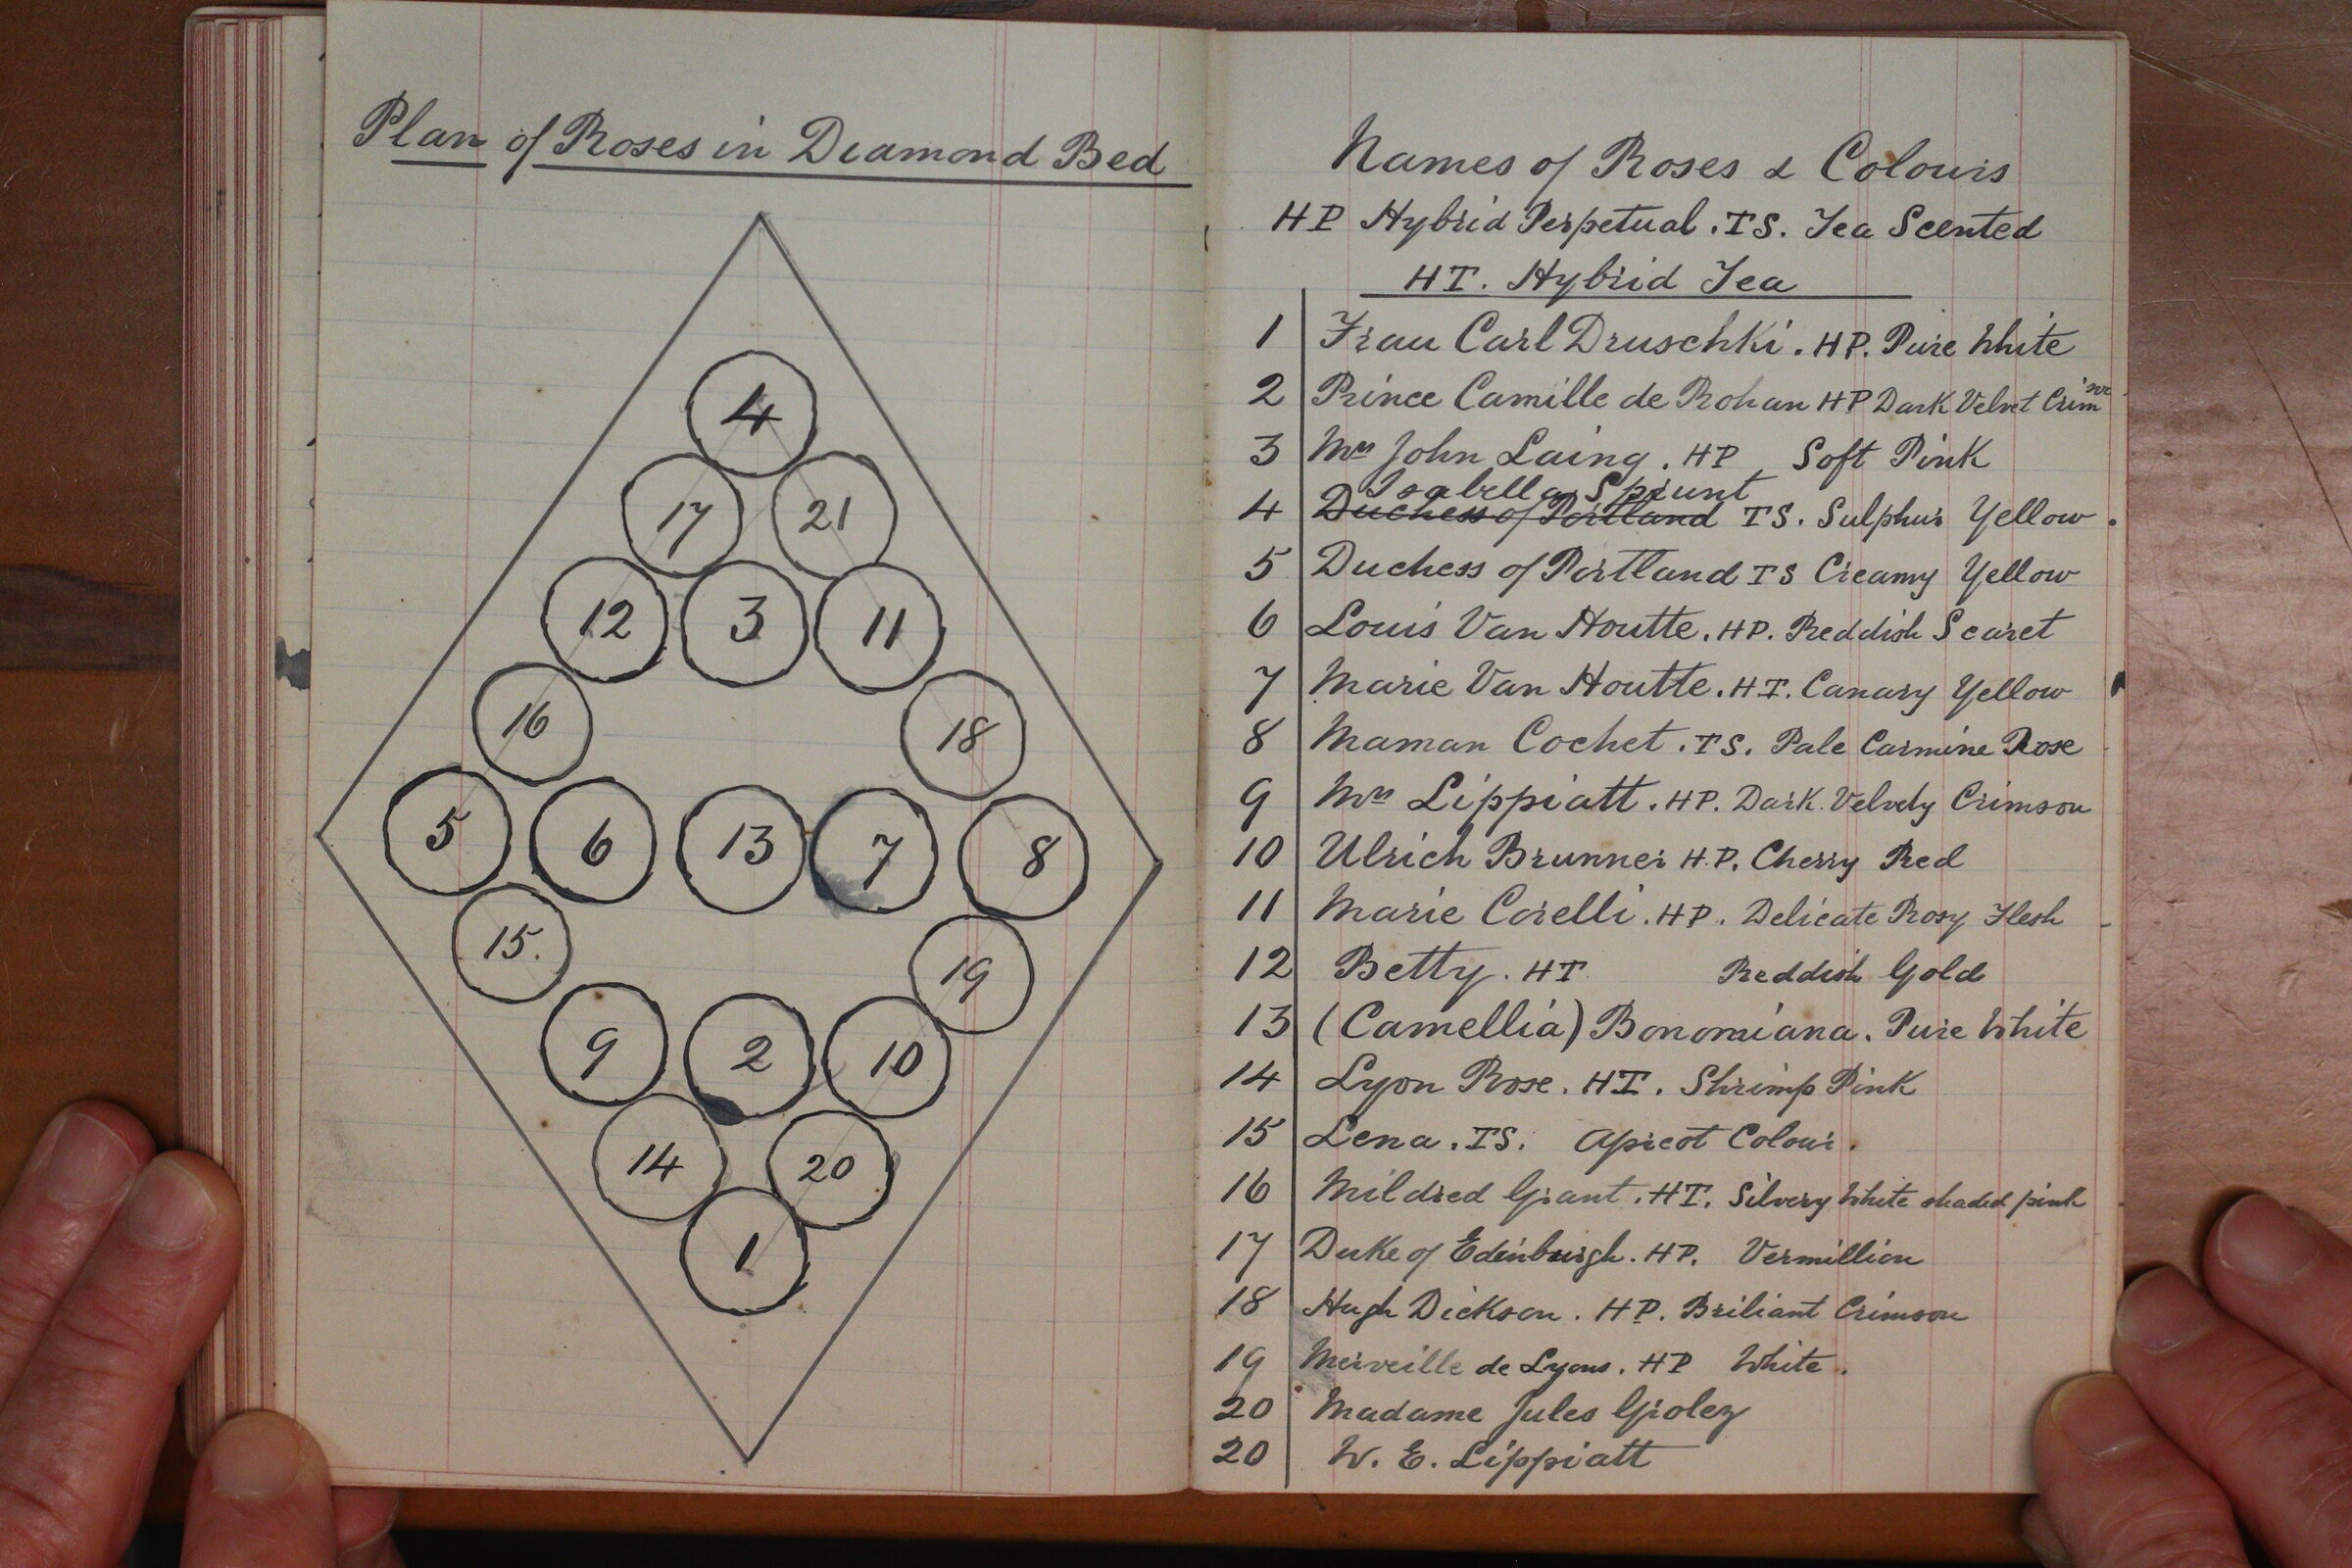 Plan of Roses in Diamond Bed
4
17 21
12 3 11
16 18
5 6 13 7 8
15. 19
9 2 10
14 20
1
Names of Roses & Colours
HP Hybrid Perpetual . TS. Tea Scented
HT. Hybrid Tea
1 Frau Carl Druschki. HP. Pure White
2 Prince Camille de Rohan HP Dark Velvet Crimson
3 Mrs John Laing. HP Soft Pink
Isabella Sprunt
4 Duchess of Portland TS. Sulphur Yellow.
5 Duchess of Portland TS Creamy Yellow
6 Louis Van Houtte. HP. Reddish Scaret
7 Marie Van Houtte. HT. Canary Yellow
8 Maman Cochet. TS. Pale Carmine Rose
9 Mrs Lippiatt. HP. Dark Velvety Crimson
10 Ulrich Brunner H.P. Cherry Red
11 Marie Corelli. HP. Delicate Rosy Flesh
12 Betty. HT Reddish Gold
13 (Camellia) Bonomiana. Pure White
14 Lyon Rose. HT. Shrimp Pink
15 Lena. TS. Apricot Colour.
16 Mildred Grant. HT. Silvery White shaded pink
17 Duke of Edinburgh. HP. Vermillion
18 Hugh Dickson. HP. Briliant Crimson
19 Merveille de Lyons. HP White.
20 Madame Jules Grolez
20 W. E. Lippiatt